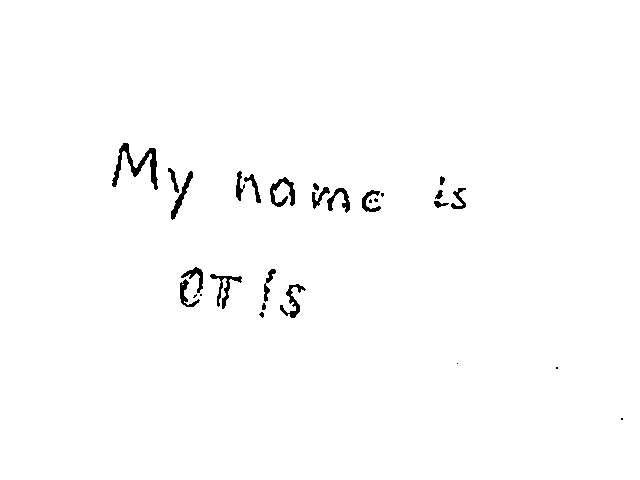 My name is
OTIS